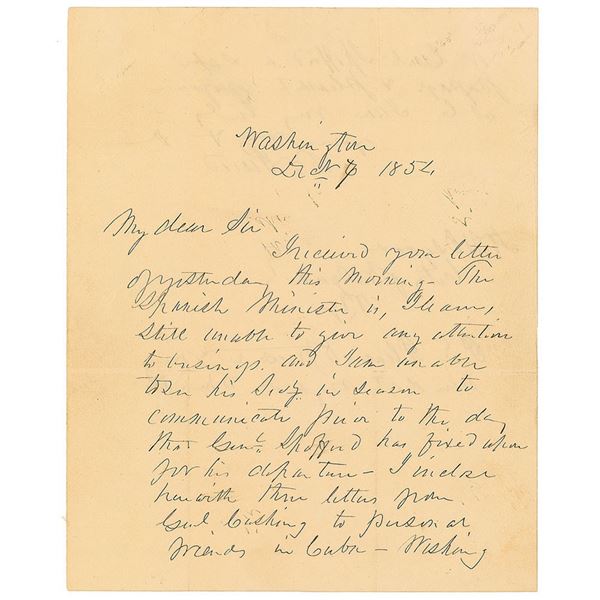 Washington
Dec 1854
My dear Sir
I received your letter
of yesterday this morning - The
Spanish Minister is, I learn,
still unable to give any attention
to business. and I am unable
to see his Secy. in season to
communicate prior to the day
that Genl. Shofford has fixed upon
for his departure - I inclose
herewith three letters from
Genl Cushing to personal
friends in Cuba - Wishing